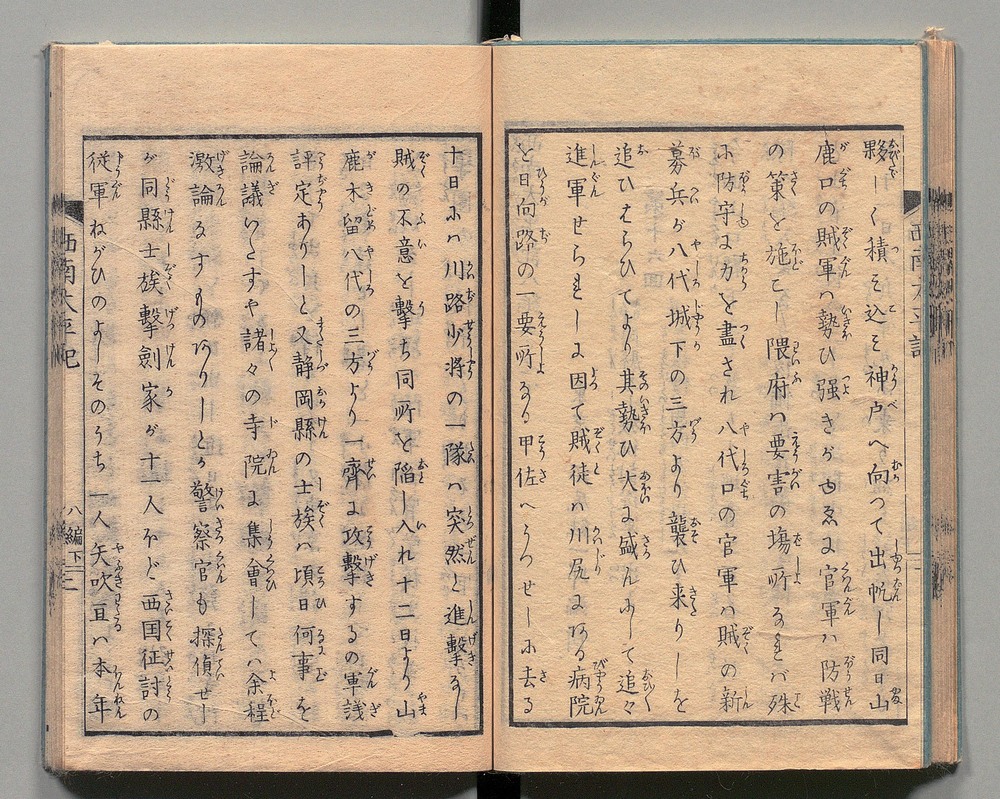 夥しく積み込み神戸へ向つて出帆し同日山
鹿口の賊軍ハ勢ひ強きがゆゑに官軍ハ防戦
の策を施こし隈府ハ要害の場所なれバ殊
に防守に力を盡され八代口の官軍ハ賊の新
募兵が八代城下の三方より襲ひ来りしを
追ひはらひてより其勢ひ大に盛んにして追々
進軍せられしに因て賊徒ハ川尻にある病院
を日向路の一要所なる甲佐へうつせしに去る
西南太平記
十日にハ川路少将の一隊ハ突然と進撃なし
賊の不意を撃ち同所を陥し入れ十二日より山
鹿木留八代の三方より一齊に攻撃するの軍議
評定ありしと又静岡縣の士族ハ頃日何事を
論議いたすや諸々の寺院に集會してハ余程
激論なすものありしとか警察官も探偵せし
が同縣士族撃劍家が十一人ほど西国征討の
従軍ねがひのよしそのうち一人矢吹亘ハ本年
西南太平記
八編下
二